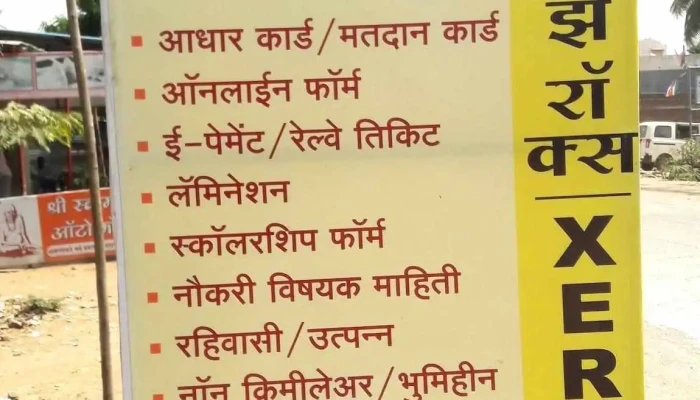 आधार कार्ड/मतदान कार्ड
ऑनलाईन फॉर्म
ई-पेमेंट/रेल्वे तिकिट
लॅमिनेशन
स्कॉलरशिप फॉर्म
नौकरी विषयक माहिती
रहिवासी/उत्पन्न
नॉन क्रिमीलेअर/भुमिहीन
झेरॉक्स
XER
श्री
ऑटो